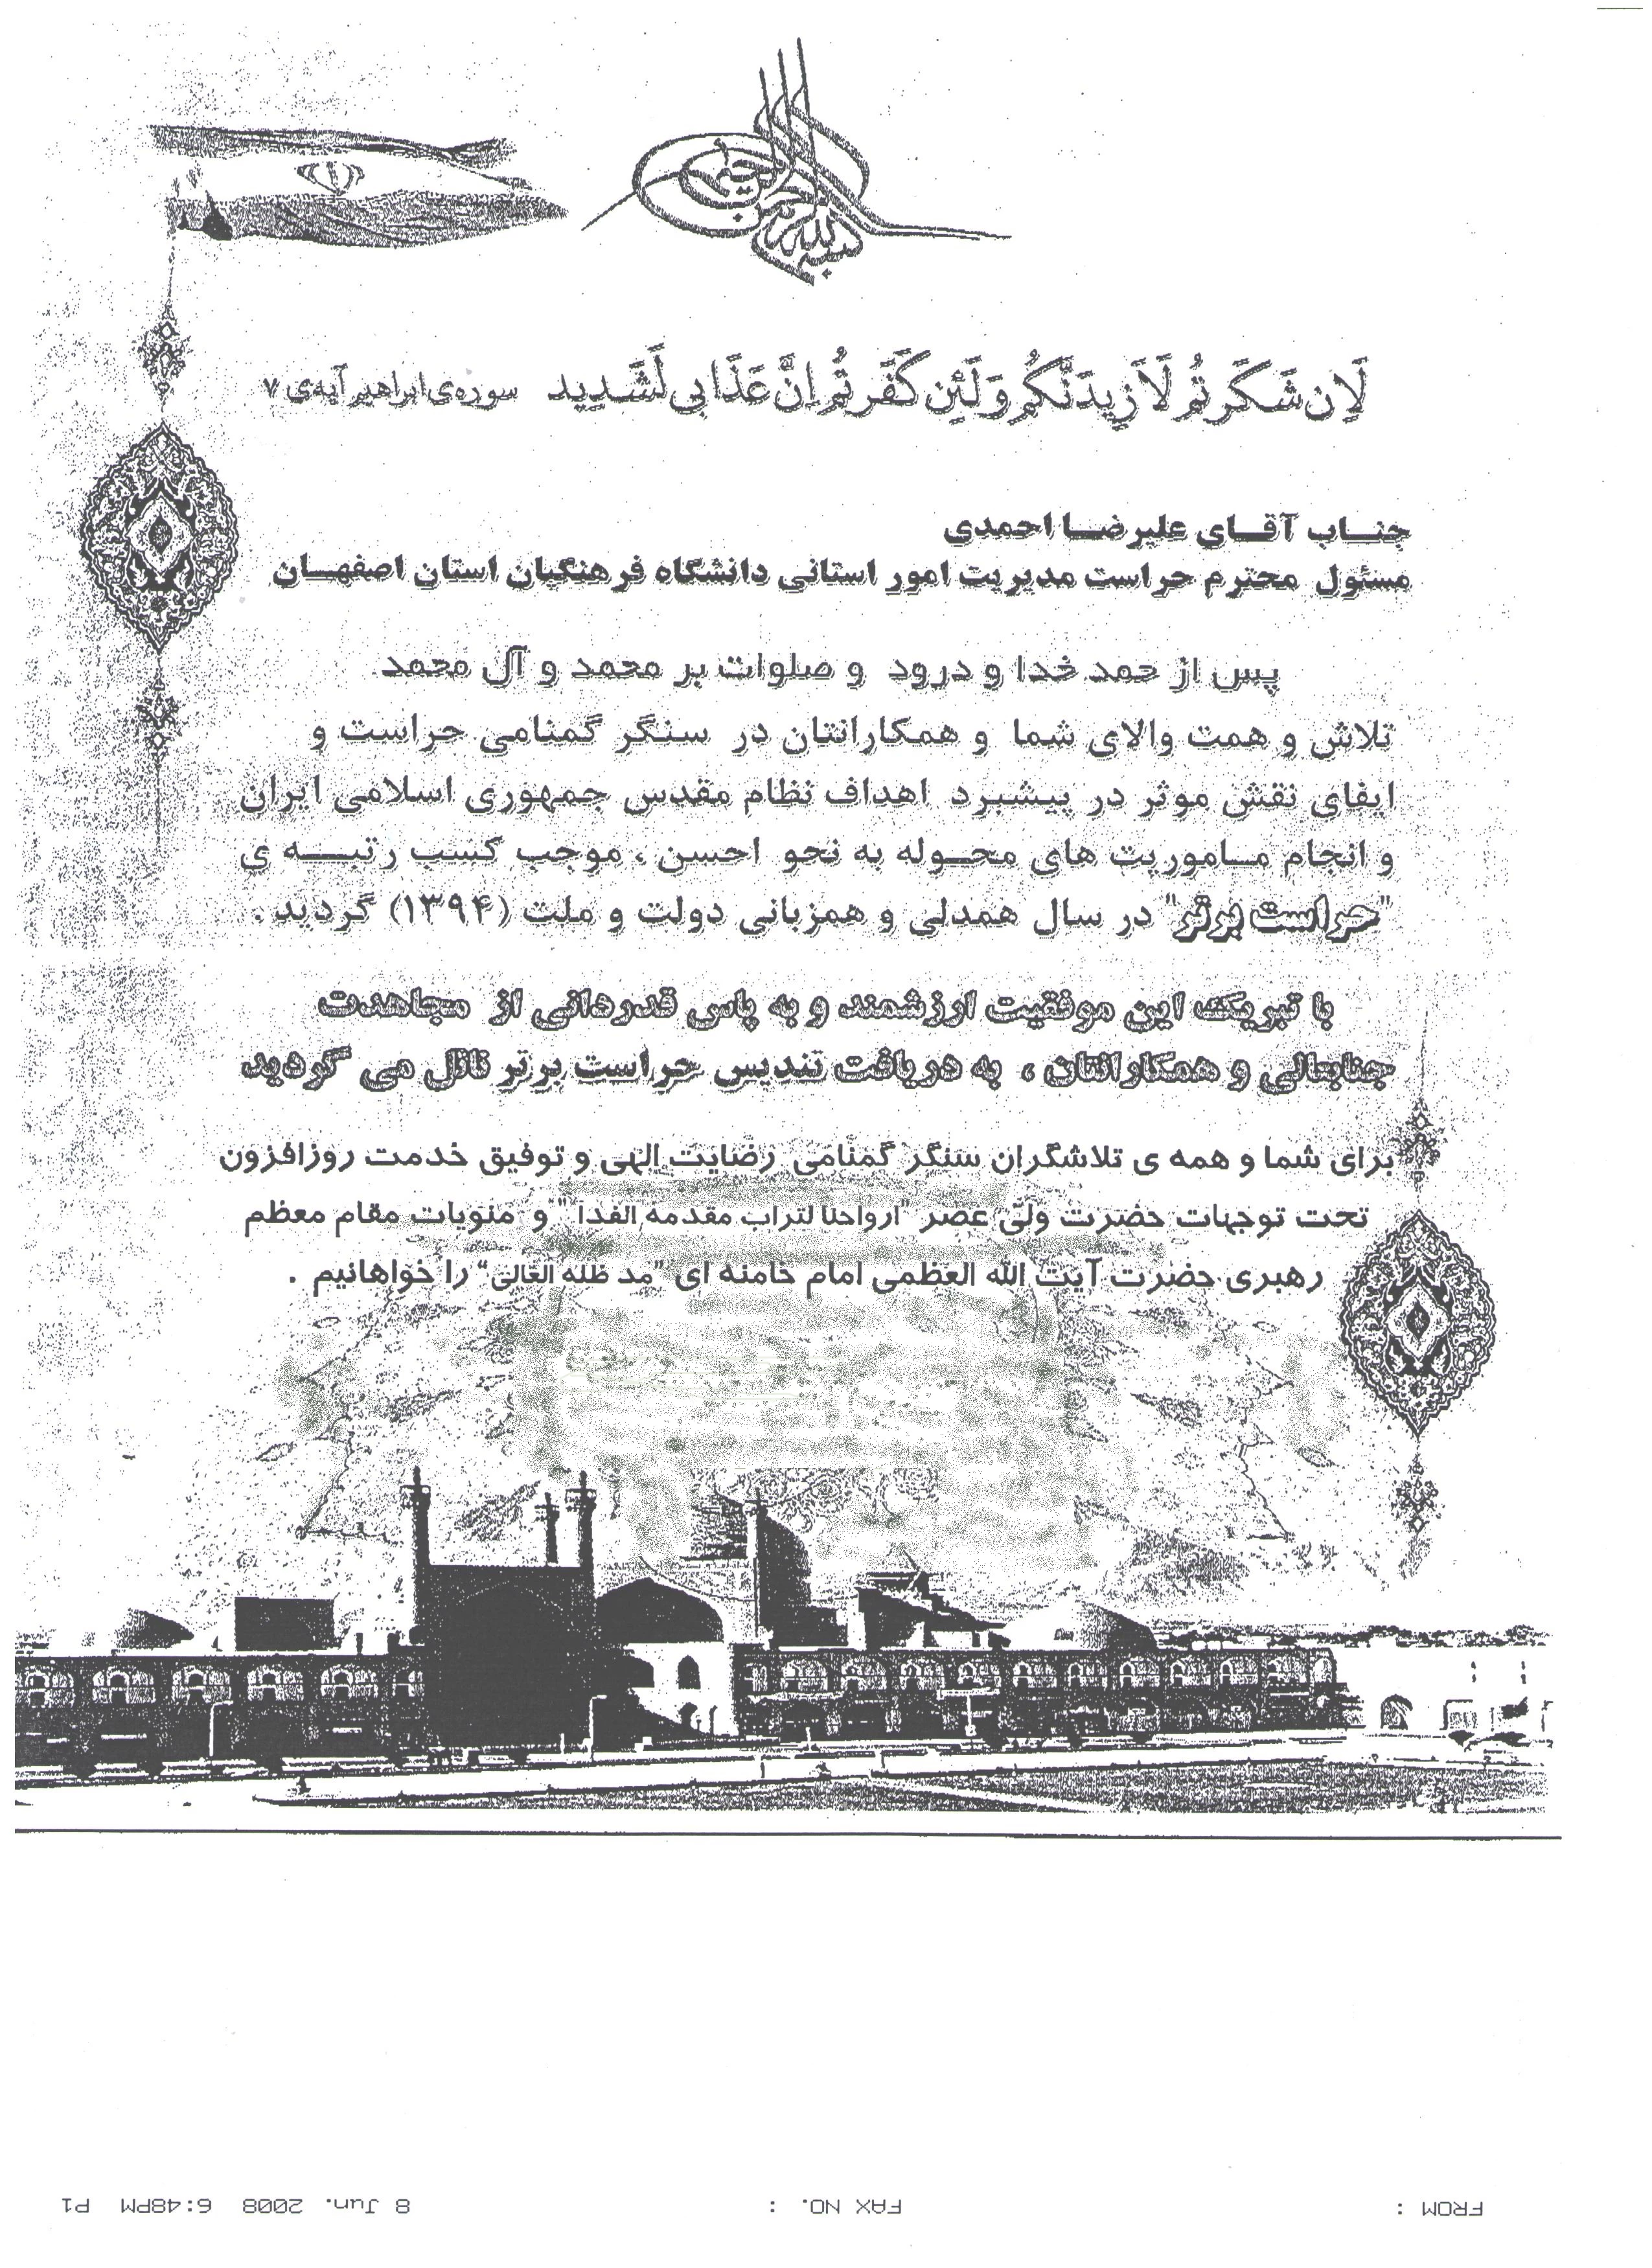 بسم الله الرحمن الرحیم
لَاِن شَکَرتُم لَاَزیدَنَّکُم وَلَئِن کَفَرتُم اِنَّ عَذَابی لَشَدِید سوره‌ی ابراهیم آیه‌ی ۷
جنــاب آقــای علیرضــا احمدی
مسئول محترم حراست مدیریت امور استانی دانشگاه فرهنگیان استان اصفهــان
پس از حمد خدا و درود و صلوات بر محمد و آل محمد
تلاش و همت والای شما و همکارانتان در سنگر گمنامی حراست و
ایفای نقش موثر در پیشبرد اهداف نظام مقدس جمهوری اسلامی ایران
و انجام مــاموریت های محــوله به نحو احسن ، موجب کسب رتبــه ی
"حراست برتر" در سال همدلی و همزبانی دولت و ملت (۱۳۹۴) گردید .
با تبریک این موفقیت ارزشمند و به پاس قدردانی از مجاهدت
جنابعالی و همکارانتان ، به دریافت تندیس حراست برتر نائل می گردید
برای شما و همه ی تلاشگران سنگر گمنامی رضایت الهی و توفیق خدمت روزافزون
تحت توجهات حضرت ولیّ عصر "ارواحنا لتراب مقدمه الفدا" و منویات مقام معظم
رهبری حضرت آیت الله العظمی امام خامنه ای "مد ظله العالی" را خواهانیم .
FROM : FAX NO. : 8 Jun. 2008 6:48PM P1